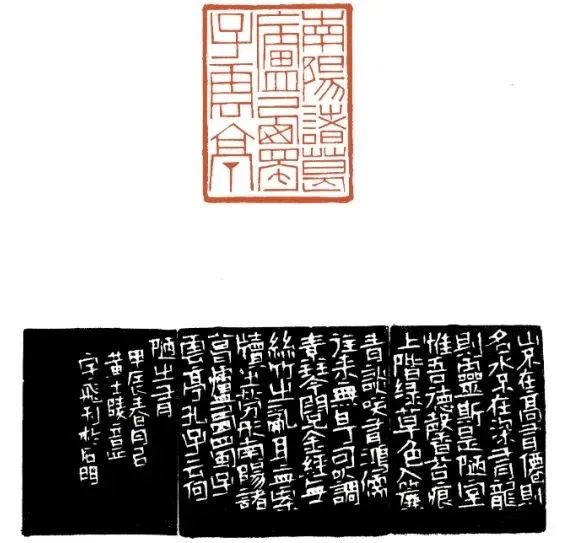 南陽諸葛
廬西蜀
子雲亭
山不在高有僊則
名水不在深有龍
則靈斯是陋室
惟吾德馨苔痕
上階綠草色入簾
青談笑有鴻儒
往來無白丁可以調
素琴閱金經無
絲竹之亂耳無案
牘之勞形南陽諸
葛廬西蜀子
雲亭孔子云何
陋之有
甲辰春
黃士陵意
飛刊於石門